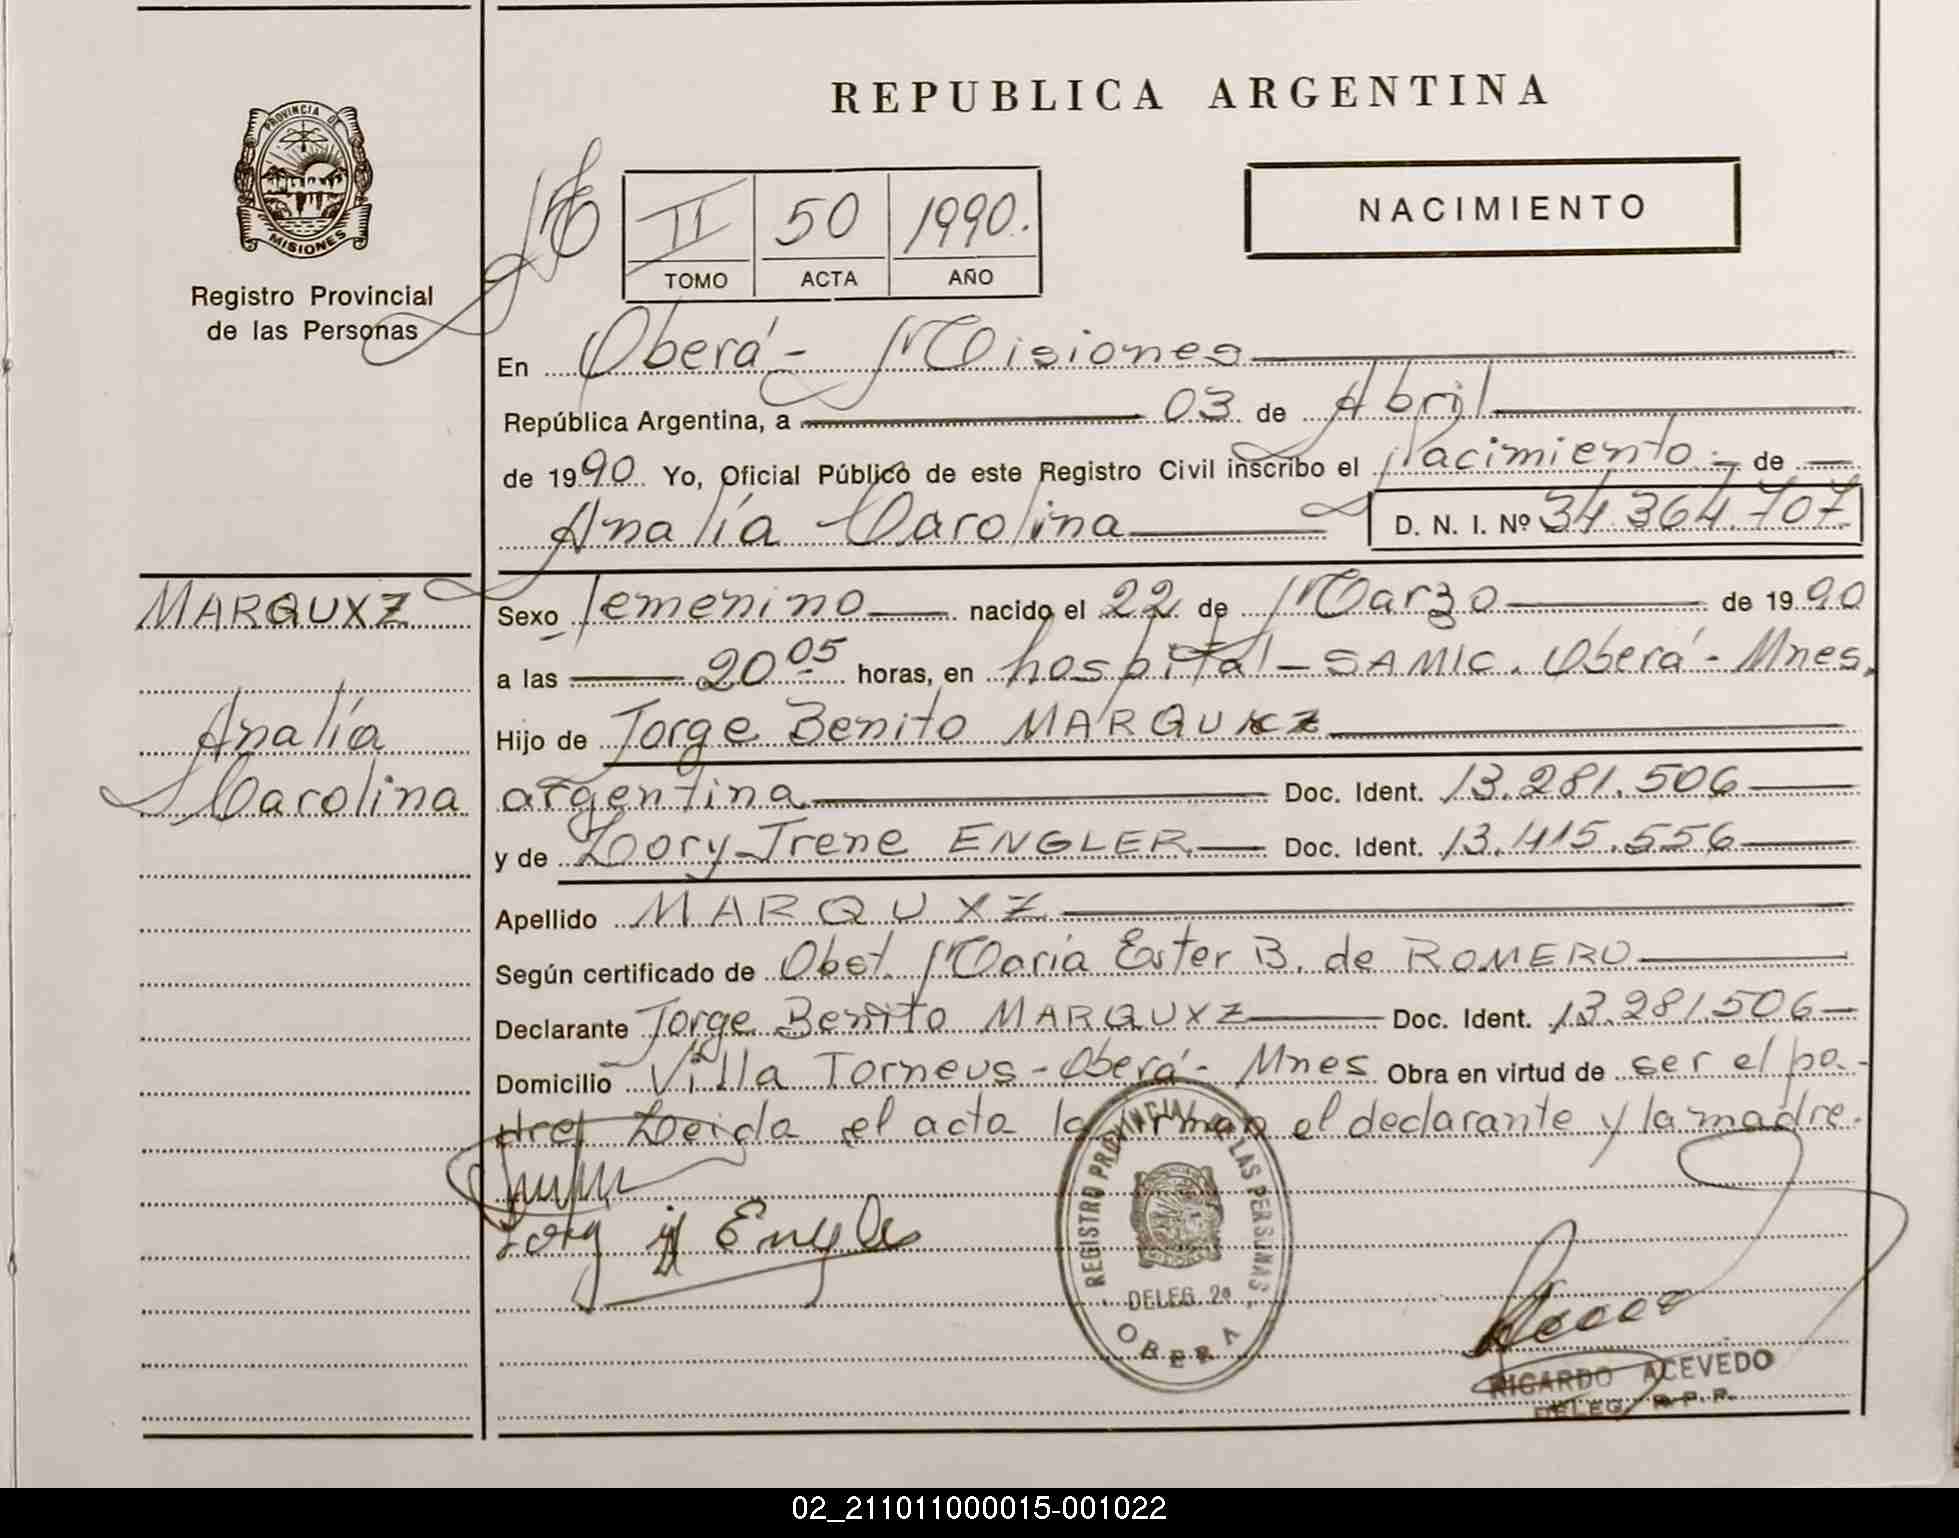 REPUBLICA ARGENTINA
PROVINCIA DE
MISIONES
Registro Provincial
de las Personas
II 50 1990.
TOMO ACTA AÑO
NACIMIENTO
En Oberá - Misiones
República Argentina, a 03 de Abril
de 1990 Yo, Oficial Público de este Registro Civil inscribo el Nacimiento - de
Analía Carolina D. N. I. Nº 34.364.707
MARQUXZ
Analía
Carolina
Sexo femenino nacido el 22 de Marzo de 1990
a las 20 05 horas, en hospital - SAMIC. Oberá - Mnes.
Hijo de Jorge Benito MARQUXZ
argentina Doc. Ident. 13.281.506
y de Dory Irene ENGLER Doc. Ident. 13.415.556
Apellido MARQUXZ
Según certificado de Obst. María Ester B. de ROMERO
Declarante Jorge Benito MARQUXZ Doc. Ident. 13.281.506
Domicilio Villa Torneus - Oberá - Mnes Obra en virtud de ser el pa-
dre Leida el acta la firman el declarante y la madre.
REGISTRO PROVINCIAL DE LAS PERSONAS
DELEG. 2ª
OBERA
RICARDO ACEVEDO
DELEG. R.P.P.
02_211011000015-001022